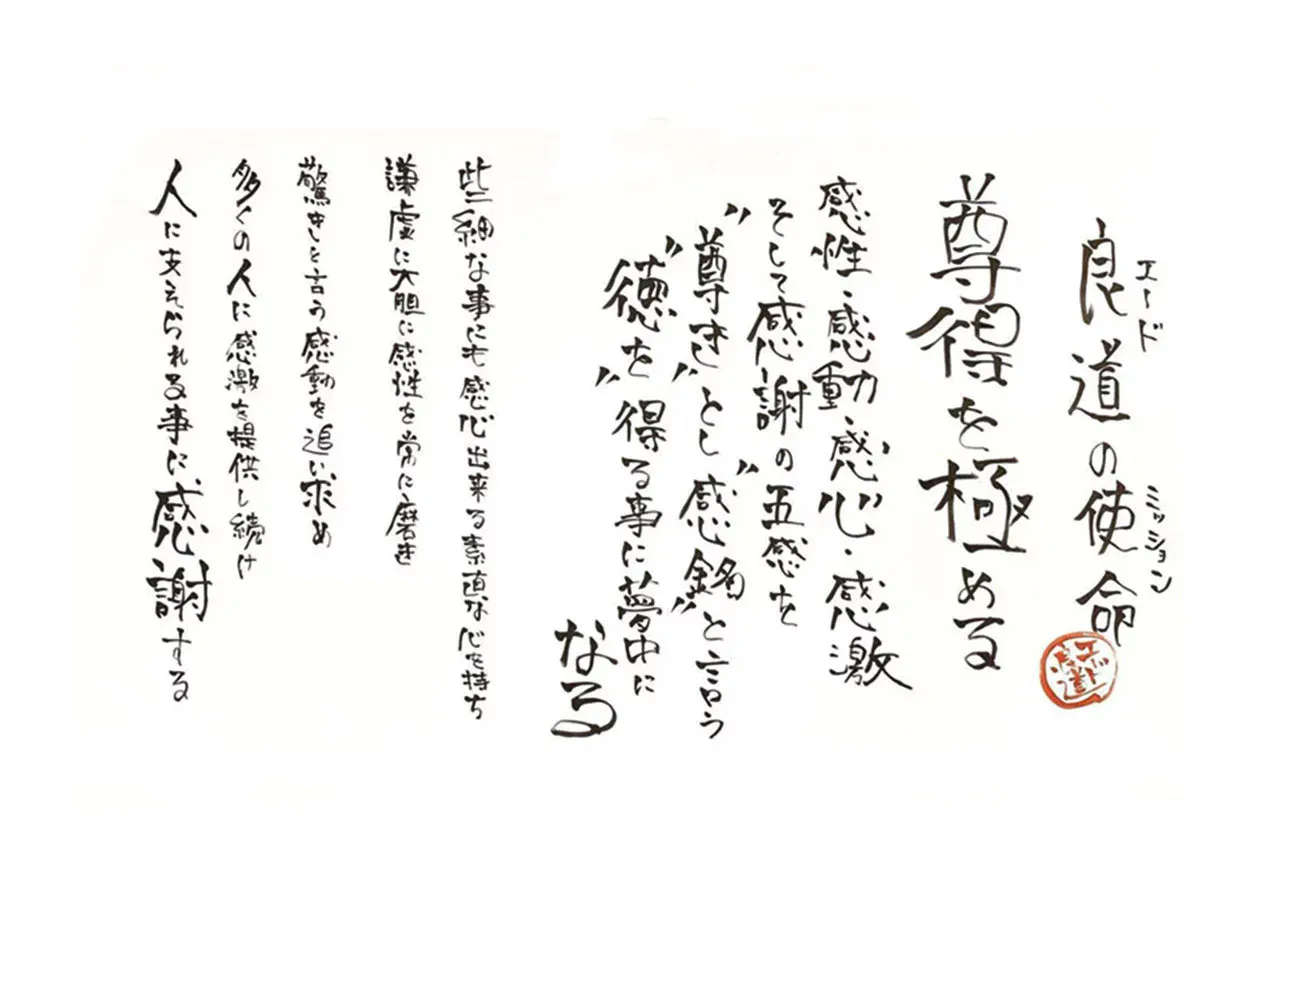 良道の使命
エード
ミッション
エード良道
尊得を極める
感性・感動・感心・感激
そして感謝の五感を
"尊き"とし"感銘"と言う
"徳"を"得る事に夢中に
なる
些細な事にも感心出来る素直な心を持ち
謙虚に大胆に感性を常に磨き
驚きと言う感動を追い求め
多くの人に感激を提供し続け
人に支えられる事に感謝する